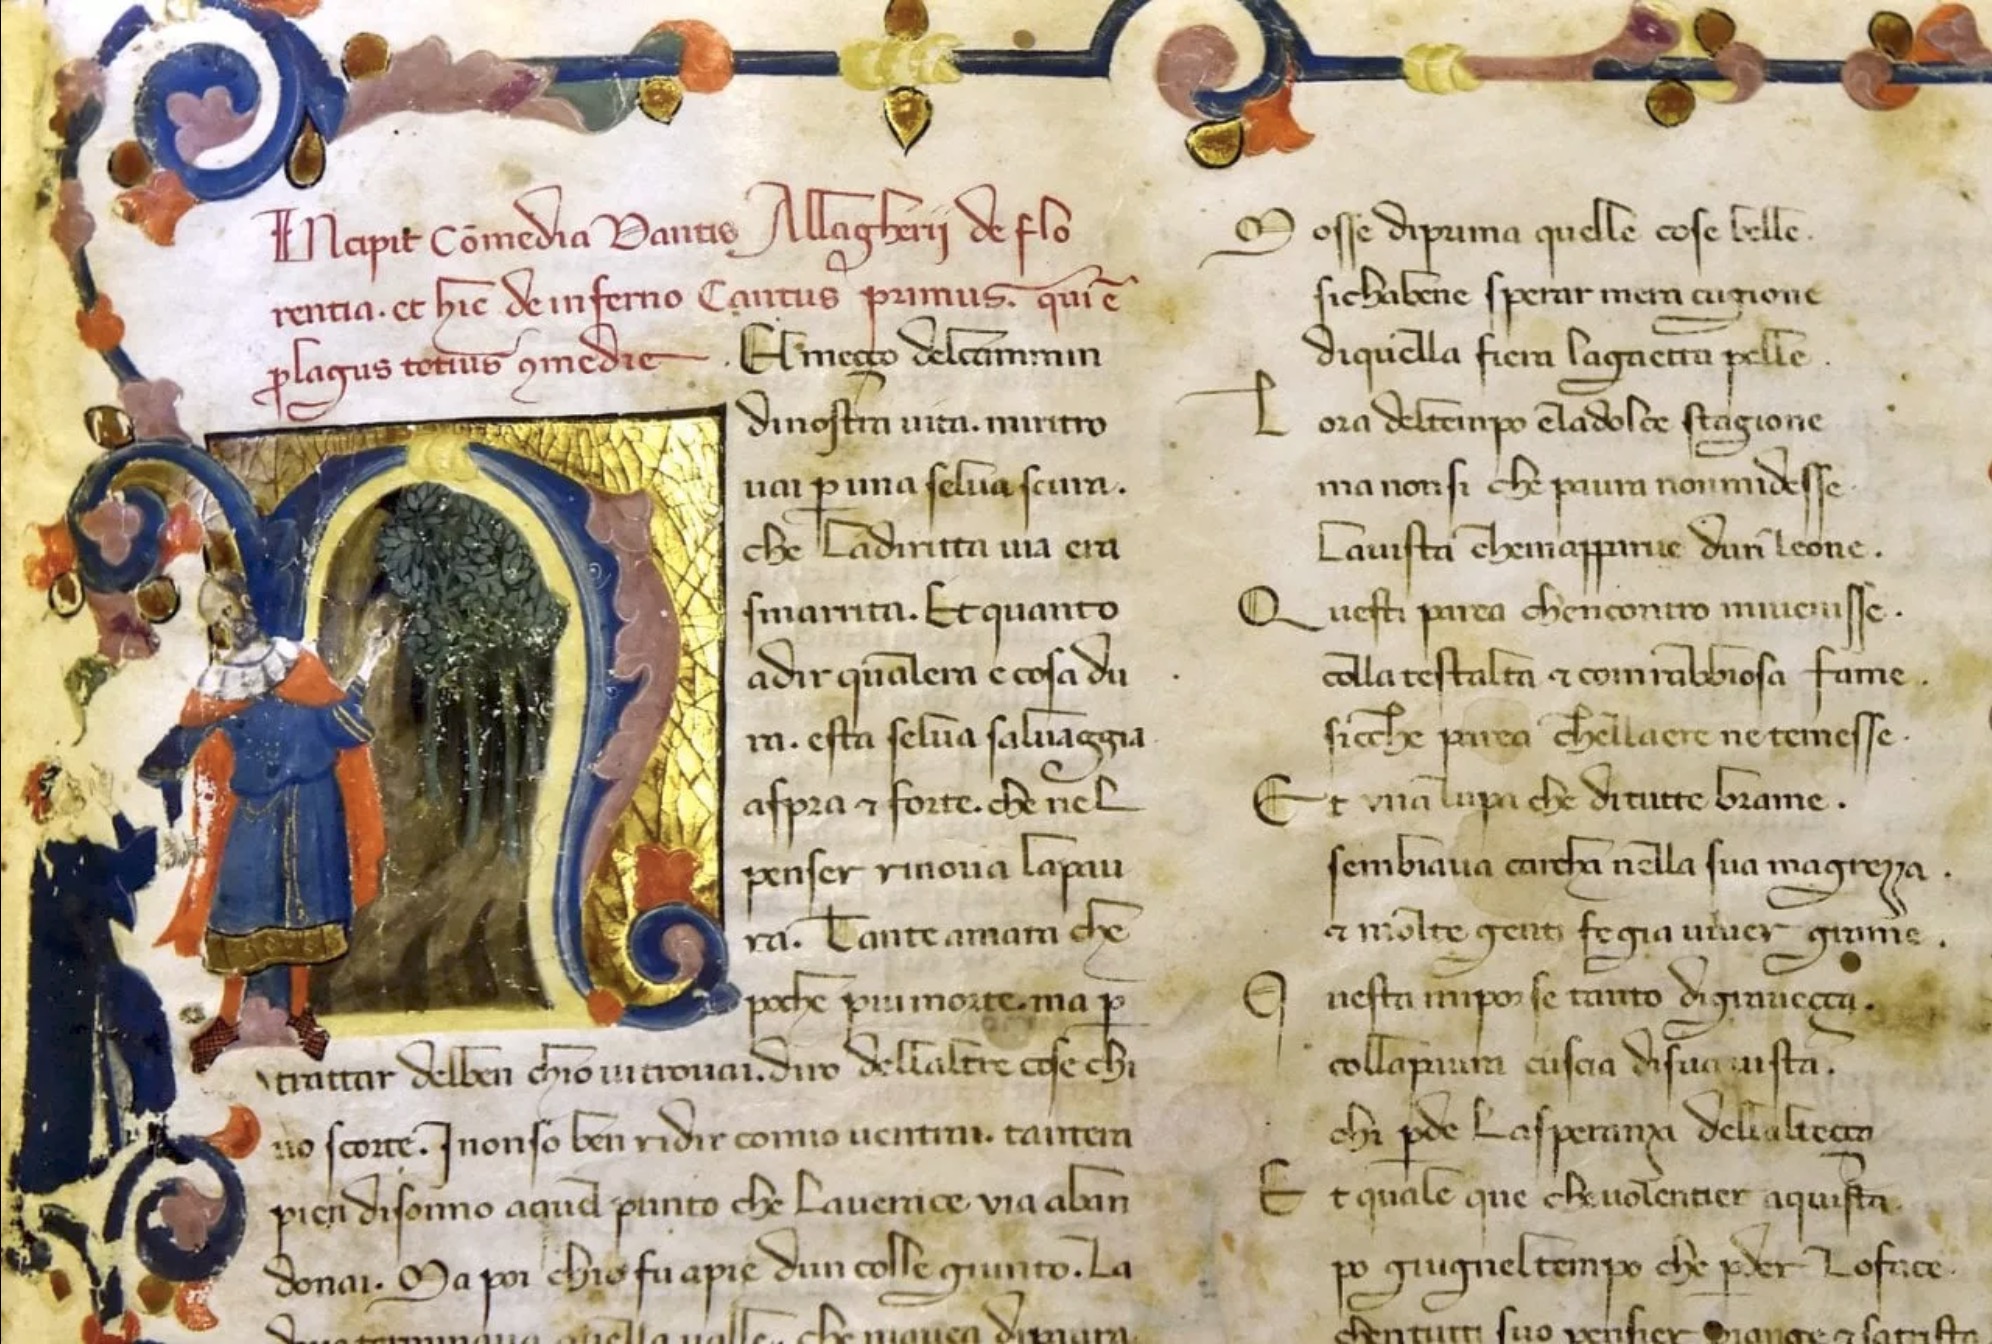 INcipit Cōmedia Dantis Allagherij de flo
rentia. et hic de inferno Cantus primus. qui ē
plagus totius ꝯmedie
El meço delcammin
dinostra uita. miritro
uai ꝑ una selua scura.
che Ladiritta uia era
smarrita. Et quanto
adir qualera e cosa du
ra. esta selua saluaggia
aspra ⁊ forte. che nel
penser rinoua lapau
ra. Tante amara che
poche piu morte. ma ꝑ
trattar delben chio ui trouai. diro dellaltre cose chi
uo scorte. I nonso ben ridir comio uentrai. tantera
pien disonno aquel punto che Lauerace via aban
donai. Ma poi chio fu apie dun colle giunto. La
doue terminaua quella valle. che mauea dipaura
M osse diprima quelle cose belle.
sichabene sperar mera cagione
diquella fiera lagaetta pelle.
L ora deltempo ⁊ ladolce stagione
ma non si che paura nonmidesse
Lauista chemapparue dun leone.
Q uesti parea chencontro miuenisse.
colla testalta ⁊ comrabbiosa fame.
sicche parea chellaere ne temesse.
E t vna lupa che ditutte brame.
sembiaua carcha nella sua magrezza.
⁊ molte genti fe gia uiuer grame.
Q uesta mi porse tanto digraueçça.
collapaura cuscia disua uista.
chi ꝑde Lasperanza dellalteçça
E t quale que cheuolentier aquista.
po giugneltempo che ꝑder Loface.
chentutti suo pensier piange ⁊ satrista